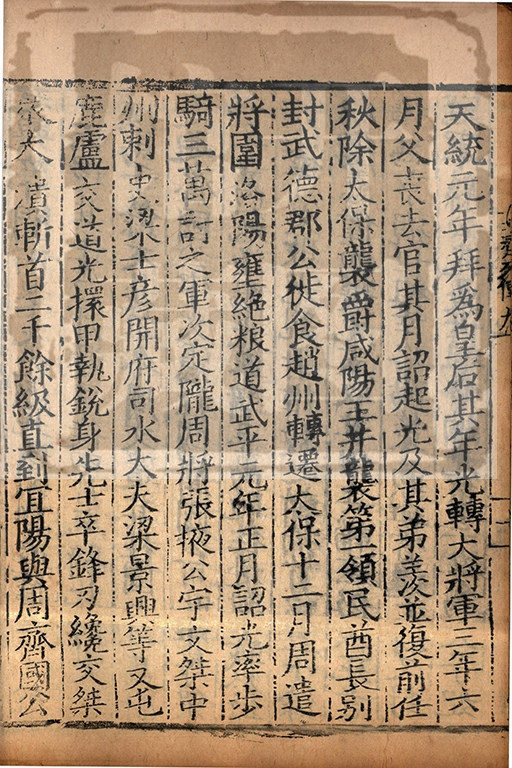 天統元年拜爲皇后其年光轉大將軍三年六
月父喪去官其月詔起光及其弟羨並復前任
秋除太保襲爵咸陽王并襲第一領民酋長别
封武德郡公徙食趙州轉遷太保十二月周遣
將圍洛陽壅絕粮道武平元年正月詔光率步
騎三萬討之軍次定隴周將張掖公宇文桀中
州刺史梁士彥開府司水太大梁景興等又屯
鹿盧交道光擐甲執銳身先士卒鋒刃纔交桀
衆大潰斬首二千餘級直到宜陽與周齊國公